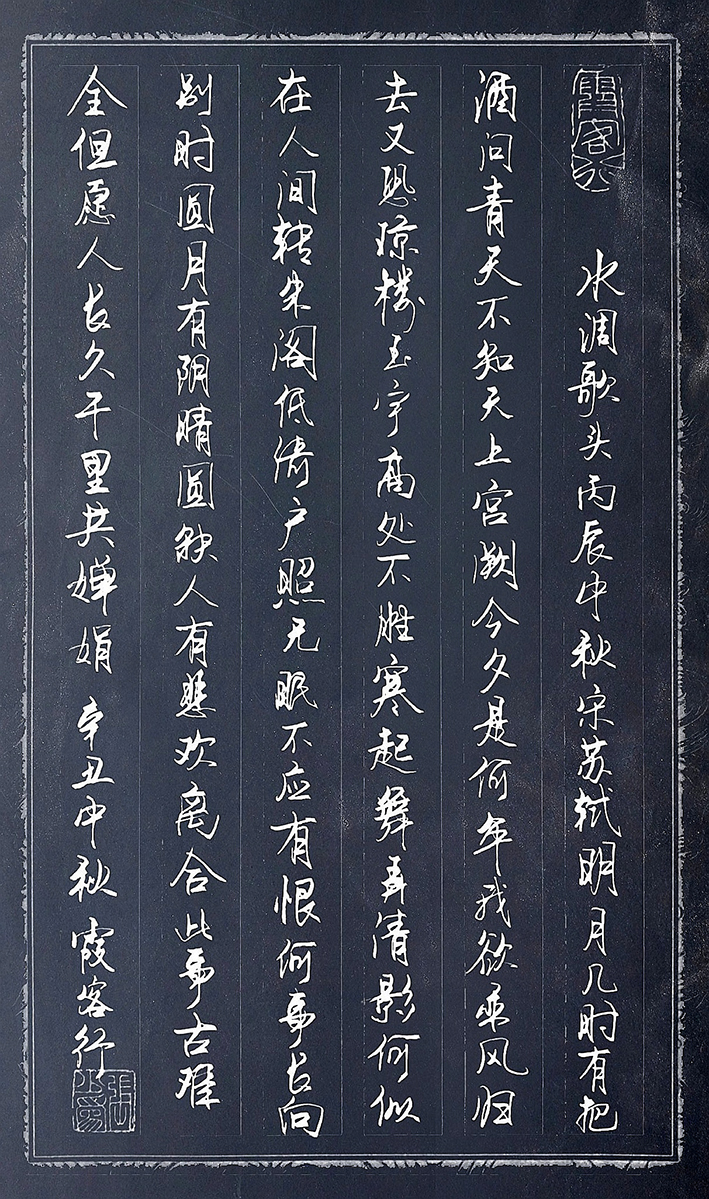 水调歌头丙辰中秋宋苏轼明月几时有把
酒问青天不知天上宫阙今夕是何年我欲乘风归
去又恐琼楼玉宇高处不胜寒起舞弄清影何似
在人间转朱阁低绮户照无眠不应有恨何事长向
别时圆月有阴晴圆缺人有悲欢离合此事古难
全但愿人长久千里共婵娟 辛丑中秋 霞客行